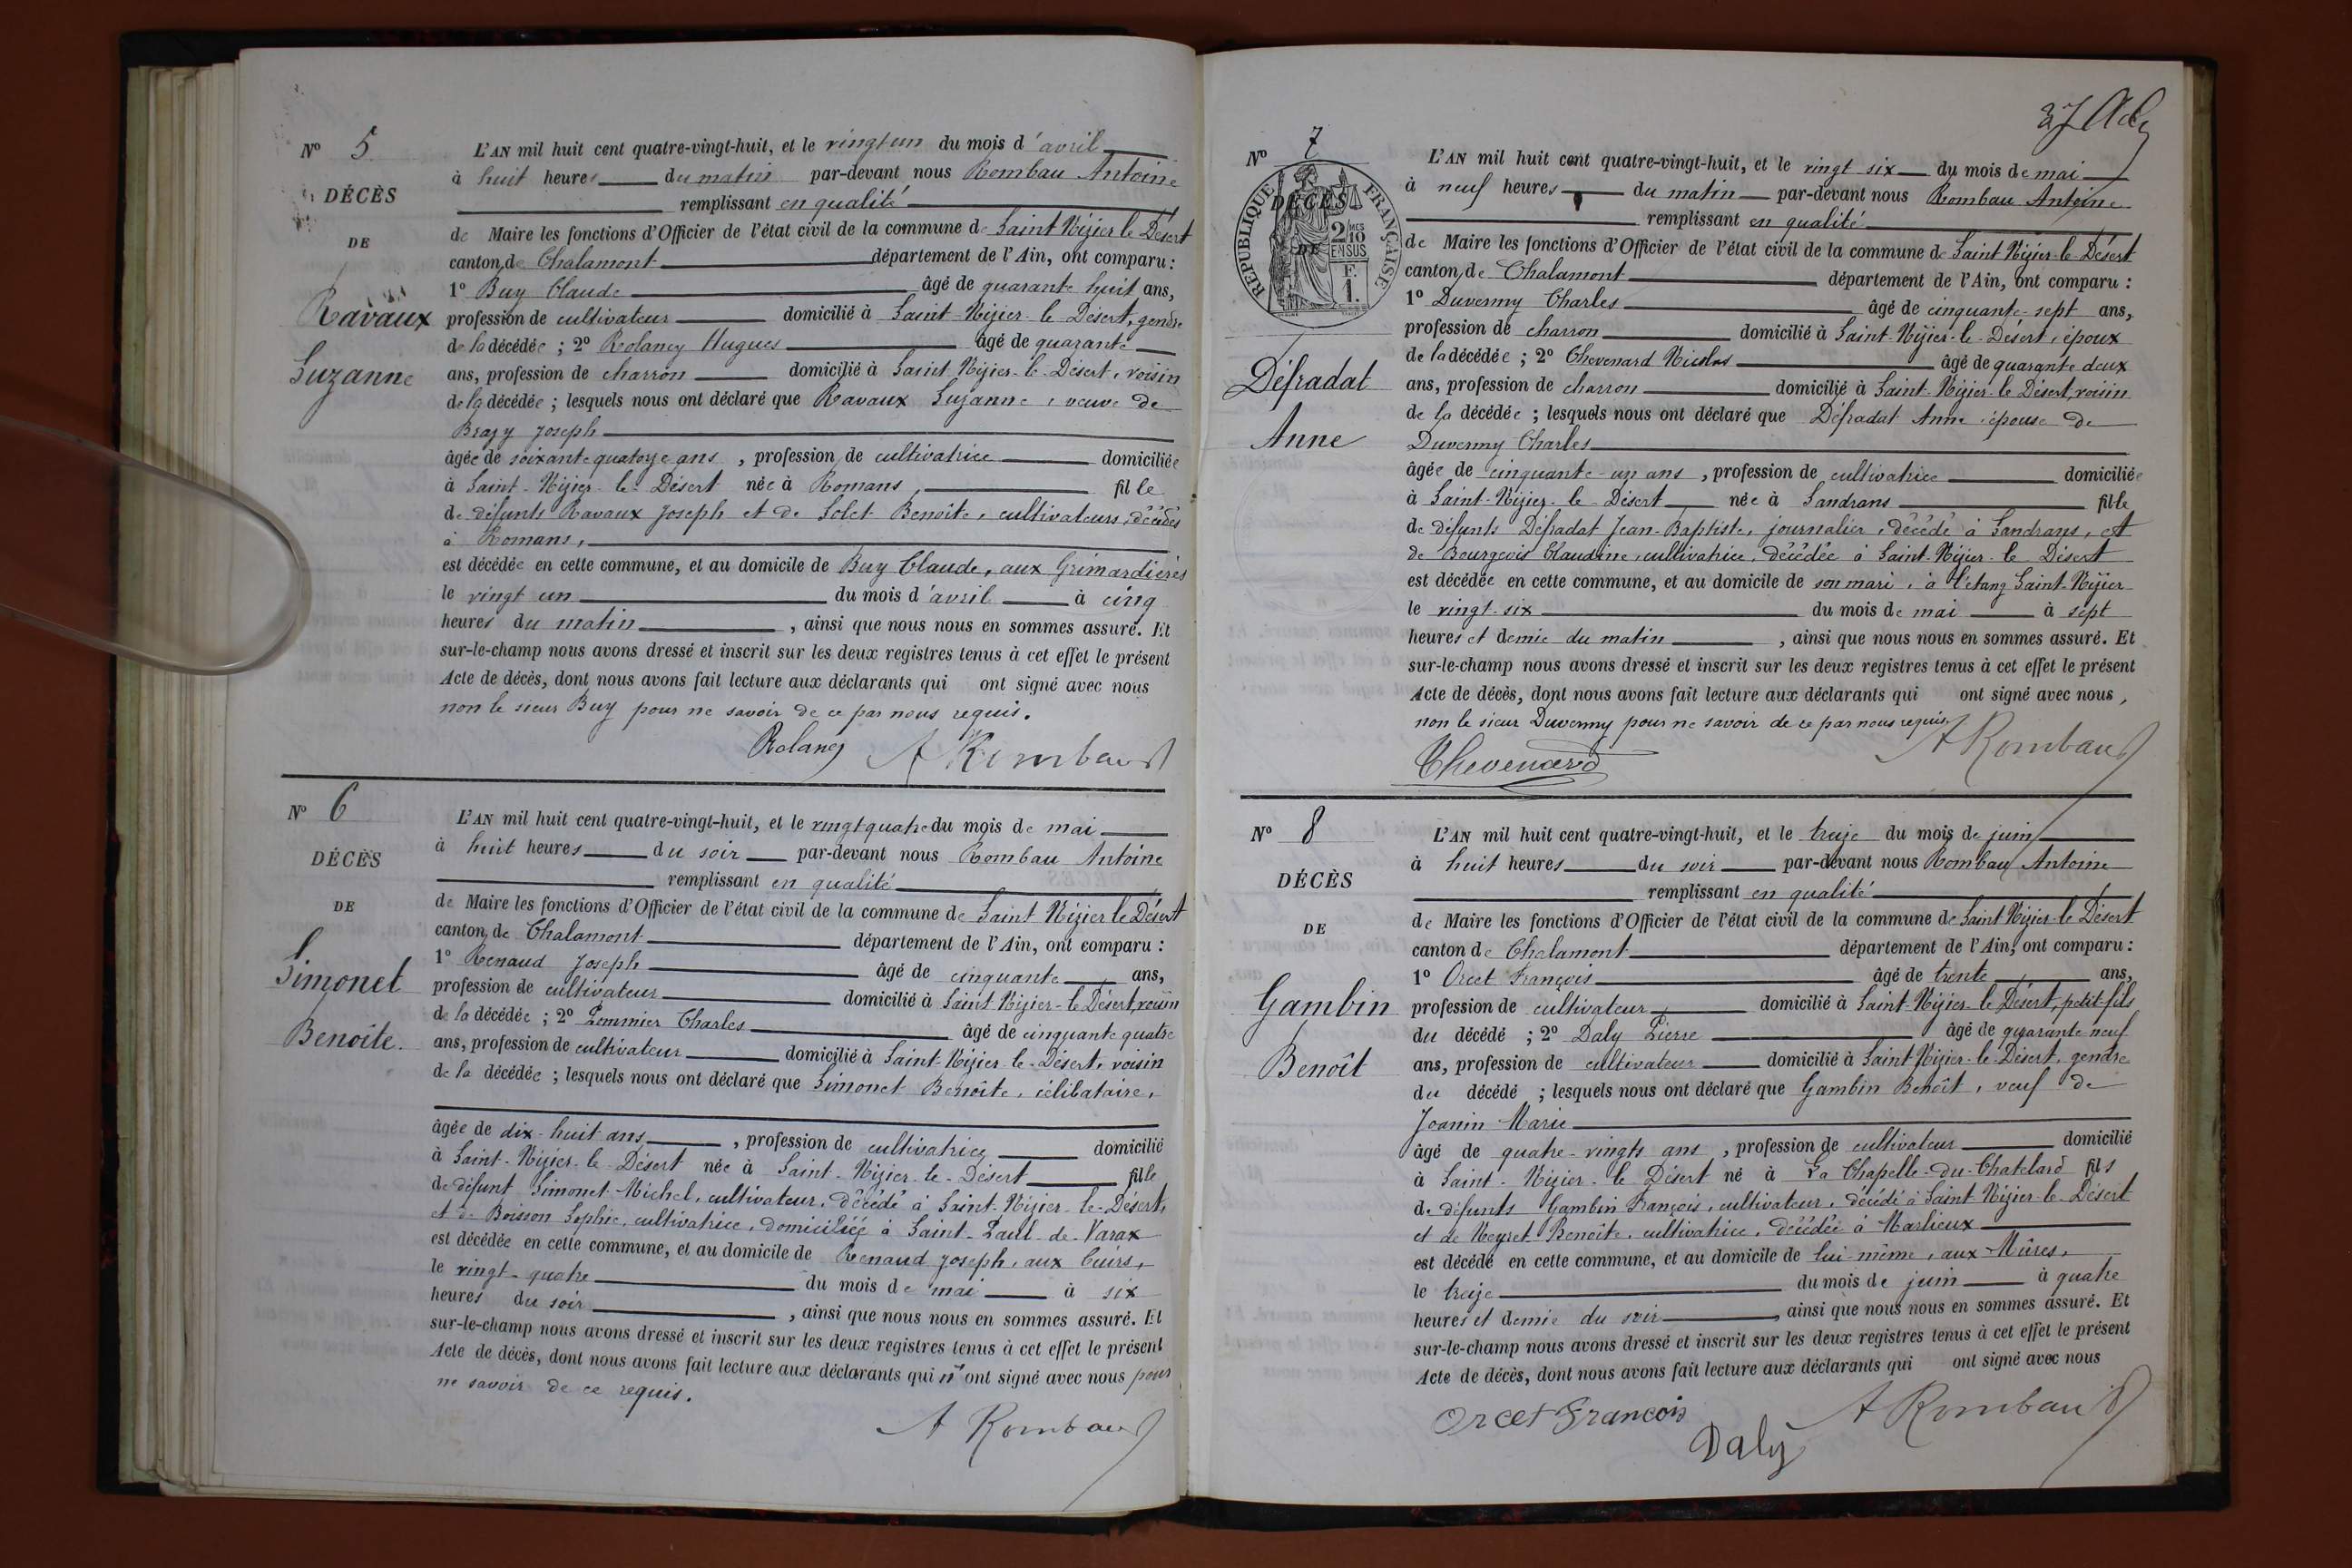 N° 5
DÉCÈS
DE
Ravaux
Suzanne
L'AN mil huit cent quatre-vingt-huit, et le vingt un du mois d'avril
à huit heures du matin par-devant nous Rombau Antoine
remplissant en qualité
de Maire les fonctions d'Officier de l'état civil de la commune de Saint Nizier le Désert
canton de Chalamont département de l'Ain, ont comparu :
1° Buy Claude âgé de quarante huit ans,
profession de cultivateur domicilié à Saint-Nizier-le-Désert, gendre
de la décédée ; 2° Rolancy Hugues âgé de quarante
ans, profession de charron domicilié à Saint Nizier-le-Désert, voisin
de la décédée ; lesquels nous ont déclaré que Ravaux Suzanne, veuve de
Brazy Joseph
âgée de soixante quatorze ans, profession de cultivatrice domiciliée
à Saint-Nizier-le-Désert née à Romans, fille
de défunts Ravaux Joseph et de Solet Benoîte, cultivateurs, décédés
à Romans,
est décédée en cette commune, et au domicile de Buy Claude, aux Grimardières
le vingt un du mois d'avril à cinq
heures du matin, ainsi que nous nous en sommes assuré. Et
sur-le-champ nous avons dressé et inscrit sur les deux registres tenus à cet effet le présent
Acte de décès, dont nous avons fait lecture aux déclarants qui ont signé avec nous
non le sieur Buy pour ne savoir de ce par nous requis.
Rolancy A Rombaud
N° 6
DÉCÈS
DE
Simonet
Benoîte.
L'AN mil huit cent quatre-vingt-huit, et le vingt quatre du mois de mai
à huit heures du soir par-devant nous Rombau Antoine
remplissant en qualité
de Maire les fonctions d'Officier de l'état civil de la commune de Saint Nizier le Désert
canton de Chalamont département de l'Ain, ont comparu :
1° Renaud Joseph âgé de cinquante ans,
profession de cultivateur domicilié à Saint Nizier-le-Désert, voisin
de la décédée ; 2° Pommier Charles âgé de cinquante quatre
ans, profession de cultivateur domicilié à Saint-Nizier-le-Désert, voisin
de la décédée ; lesquels nous ont déclaré que Simonet Benoîte, célibataire,
âgée de dix-huit ans, profession de cultivatrice domicilié
à Saint-Nizier-le-Désert née à Saint-Nizier-le-Désert fille
de défunt Simonet Michel, cultivateur, décédé à Saint-Nizier-le-Désert,
et de Boisson Sophie, cultivatrice, domiciliée à Saint-Paul-de-Varax
est décédée en cette commune, et au domicile de Renaud Joseph, aux Cuirs,
le vingt-quatre du mois de mai à six
heures du soir, ainsi que nous nous en sommes assuré. Et
sur-le-champ nous avons dressé et inscrit sur les deux registres tenus à cet effet le présent
Acte de décès, dont nous avons fait lecture aux déclarants qui n'ont signé avec nous pour
ne savoir de ce requis.
A Rombaud
37
N° 7
RÉPUBLIQUE FRANÇAISE
2/10 MES EN SUS
F. 1.
DÉCÈS
DE
Défradat
Anne
L'AN mil huit cent quatre-vingt-huit, et le vingt six du mois de mai
à neuf heures du matin par-devant nous Rombau Antoine
remplissant en qualité
de Maire les fonctions d'Officier de l'état civil de la commune de Saint Nizier-le-Désert
canton de Chalamont département de l'Ain, ont comparu :
1° Duvermy Charles âgé de cinquante-sept ans,
profession de charron domicilié à Saint-Nizier-le-Désert, époux
de la décédée ; 2° Chevenard Nicolas âgé de quarante deux
ans, profession de charron domicilié à Saint-Nizier-le-Désert, voisin
de la décédée ; lesquels nous ont déclaré que Défradat Anne épouse de
Duvermy Charles
âgée de cinquante-un ans, profession de cultivatrice domiciliée
à Saint-Nizier-le-Désert née à Sandrans fille
de défunts Défradat Jean-Baptiste, journalier, décédé à Sandrans, et
de Bourgeois Claudine, cultivatrice, décédée à Saint-Nizier-le-Désert
est décédée en cette commune, et au domicile de son mari, à l'étang Saint-Nizier
le vingt-six du mois de mai à sept
heures et demie du matin, ainsi que nous nous en sommes assuré. Et
sur-le-champ nous avons dressé et inscrit sur les deux registres tenus à cet effet le présent
Acte de décès, dont nous avons fait lecture aux déclarants qui ont signé avec nous,
non le sieur Duvermy pour ne savoir de ce par nous requis
Chevenard A Rombaud
N° 8
DÉCÈS
DE
Gambin
Benoît
L'AN mil huit cent quatre-vingt-huit, et le treize du mois de juin
à huit heures du soir par-devant nous Rombau Antoine
remplissant en qualité
de Maire les fonctions d'Officier de l'état civil de la commune de Saint Nizier-le-Désert
canton de Chalamont département de l'Ain, ont comparu :
1° Orcet François âgé de trente ans,
profession de cultivateur domicilié à Saint-Nizier-le-Désert, petit-fils
du décédé ; 2° Daly Pierre âgé de quarante neuf
ans, profession de cultivateur domicilié à Saint Nizier-le-Désert, gendre
du décédé ; lesquels nous ont déclaré que Gambin Benoît, veuf de
Joanin Marie
âgé de quatre-vingts ans, profession de cultivateur domicilié
à Saint-Nizier-le Désert né à La Chapelle-du-Chatelard fils
de défunts Gambin François, cultivateur, décédé à Saint-Nizier-le-Désert
et de Neyret Benoîte, cultivatrice, décédée à Marlieux
est décédé en cette commune, et au domicile de lui-même, aux Mûres,
le treize du mois de juin à quatre
heures et demie du soir, ainsi que nous nous en sommes assuré. Et
sur-le-champ nous avons dressé et inscrit sur les deux registres tenus à cet effet le présent
Acte de décès, dont nous avons fait lecture aux déclarants qui ont signé avec nous
Orcet François A Rombaud
Daly